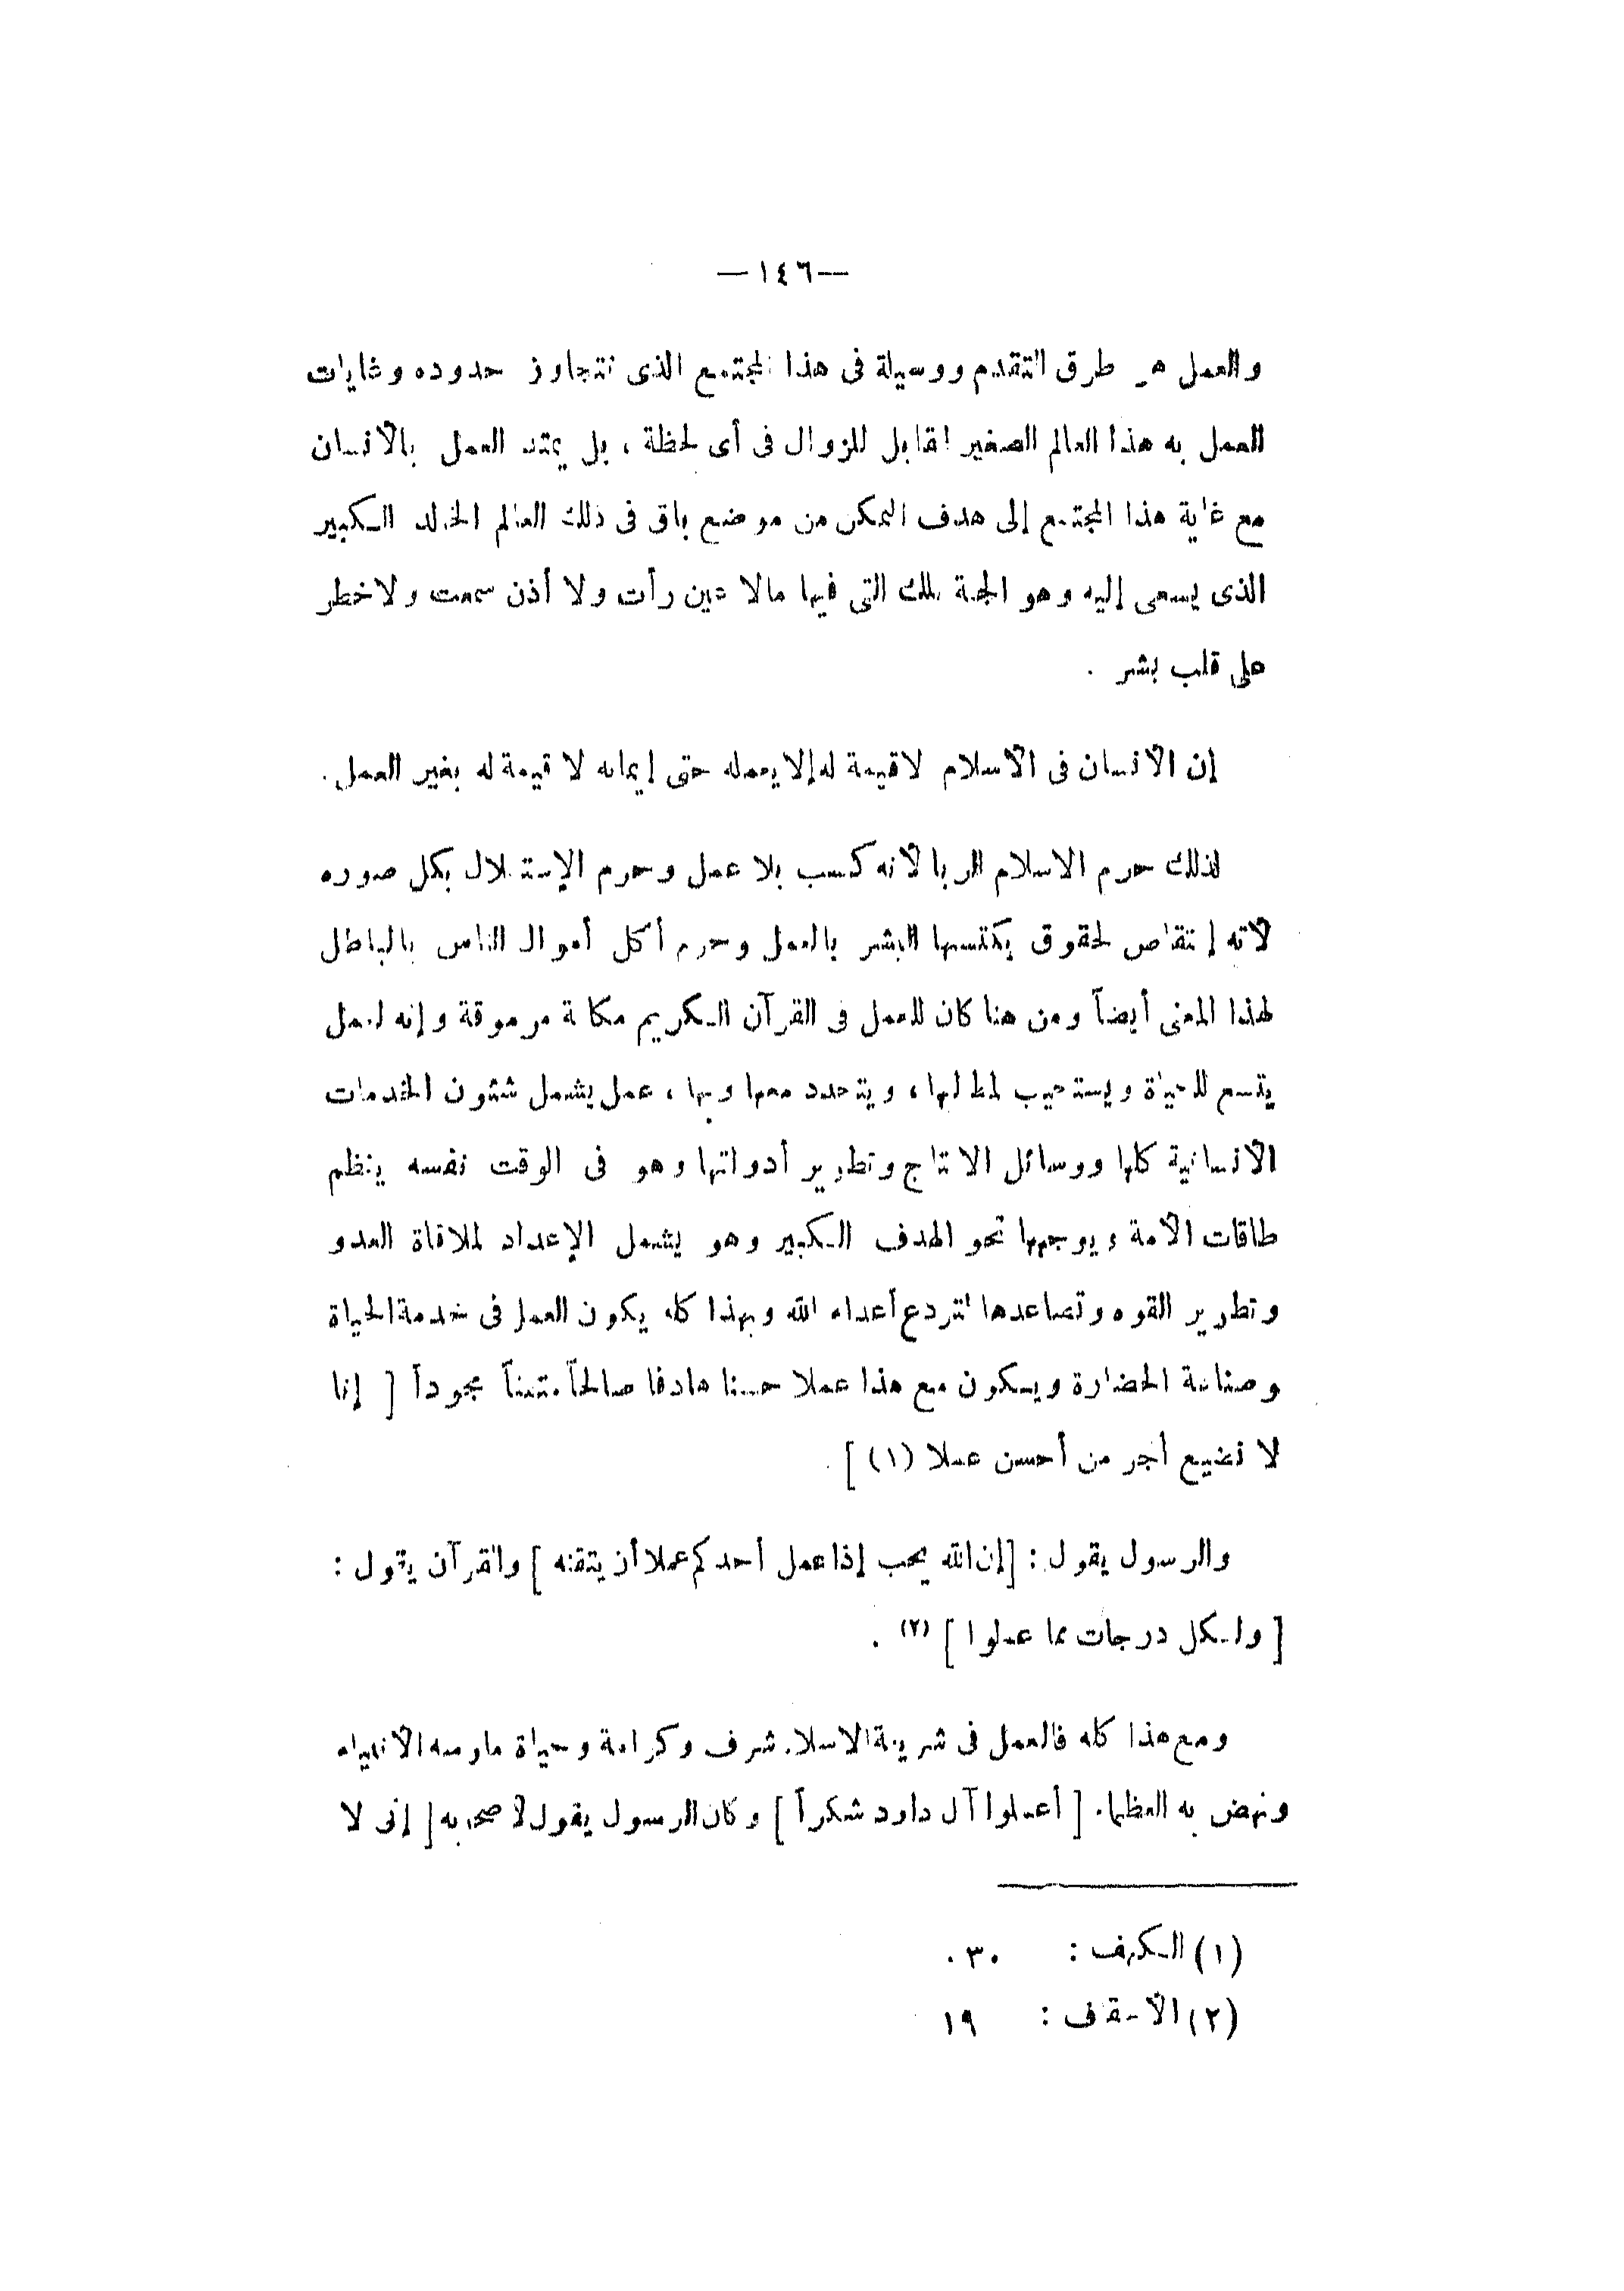 — ١٤٦ —
والعمل هو طرق التقدم ووسيلة فى هذا المجتمع الذى تتجاوز حدوده وغايات
العمل به هذا العالم الصغير القابل للزوال فى أى لحظة ، بل يمتد العمل بالانسان
مع غاية هذا المجتمع إلى هدف التمكن من موضع باق فى ذلك العالم الخالد الكبير
الذى يسعى إليه وهو الجنة تلك التى فيها مالا عين رأت ولا أذن سمعت ولا خطر
على قلب بشر .
إن الانسان فى الاسلام لا قيمة له إلا بعمله حتى إيمانه لا قيمة له بغير العمل .
لذلك حرم الاسلام الربا لأنه كسب بلا عمل وحرم الإستغلال بكل صوره
لأنه إنتقاص لحقوق يكتسبها البشر بالعمل وحرم أكل أموال الناس بالباطل
لهذا المعنى أيضاً ومن هنا كان للعمل فى القرآن الكريم مكانة مرموقة وإنه لعمل
يتسع للحياة ويستجيب لمطالبها ، ويتحدد معها وبها ، عمل يشمل شئون الخدمات
الانسانية كلها ووسائل الانتاج وتطوير أدواتها وهو فى الوقت نفسه ينظم
طاقات الأمة ويوجهها نحو الهدف الكبير وهو يشمل الإعداد لملاقاة العدو
وتطوير القوه وتصاعدها لتردع أعداء الله وبهذا كله يكون العمل فى خدمة الحياة
وصناعة الحضارة ويكون مع هذا عملا حسنا هادفا صالحاً متقناً مجوداً [ إنا
لا نضيع أجر من أحسن عملا (١) ] .
والرسول يقول : [ إن الله يحب إذا عمل أحدكم عملا أن يتقنه ] والقرآن يقول :
[ ولكل درجات مما عملوا ] (٢) .
ومع هذا كله فالعمل فى شريعة الاسلام شرف وكرامة وحياة مارسه الأنبياء
ونهض به العظماء [ أعملوا آل داود شكراً ] وكان الرسول يقول لأصحابه [ إنى لا
(١) الكهف : ٣٠ .
(٢) الأحقاف : ١٩